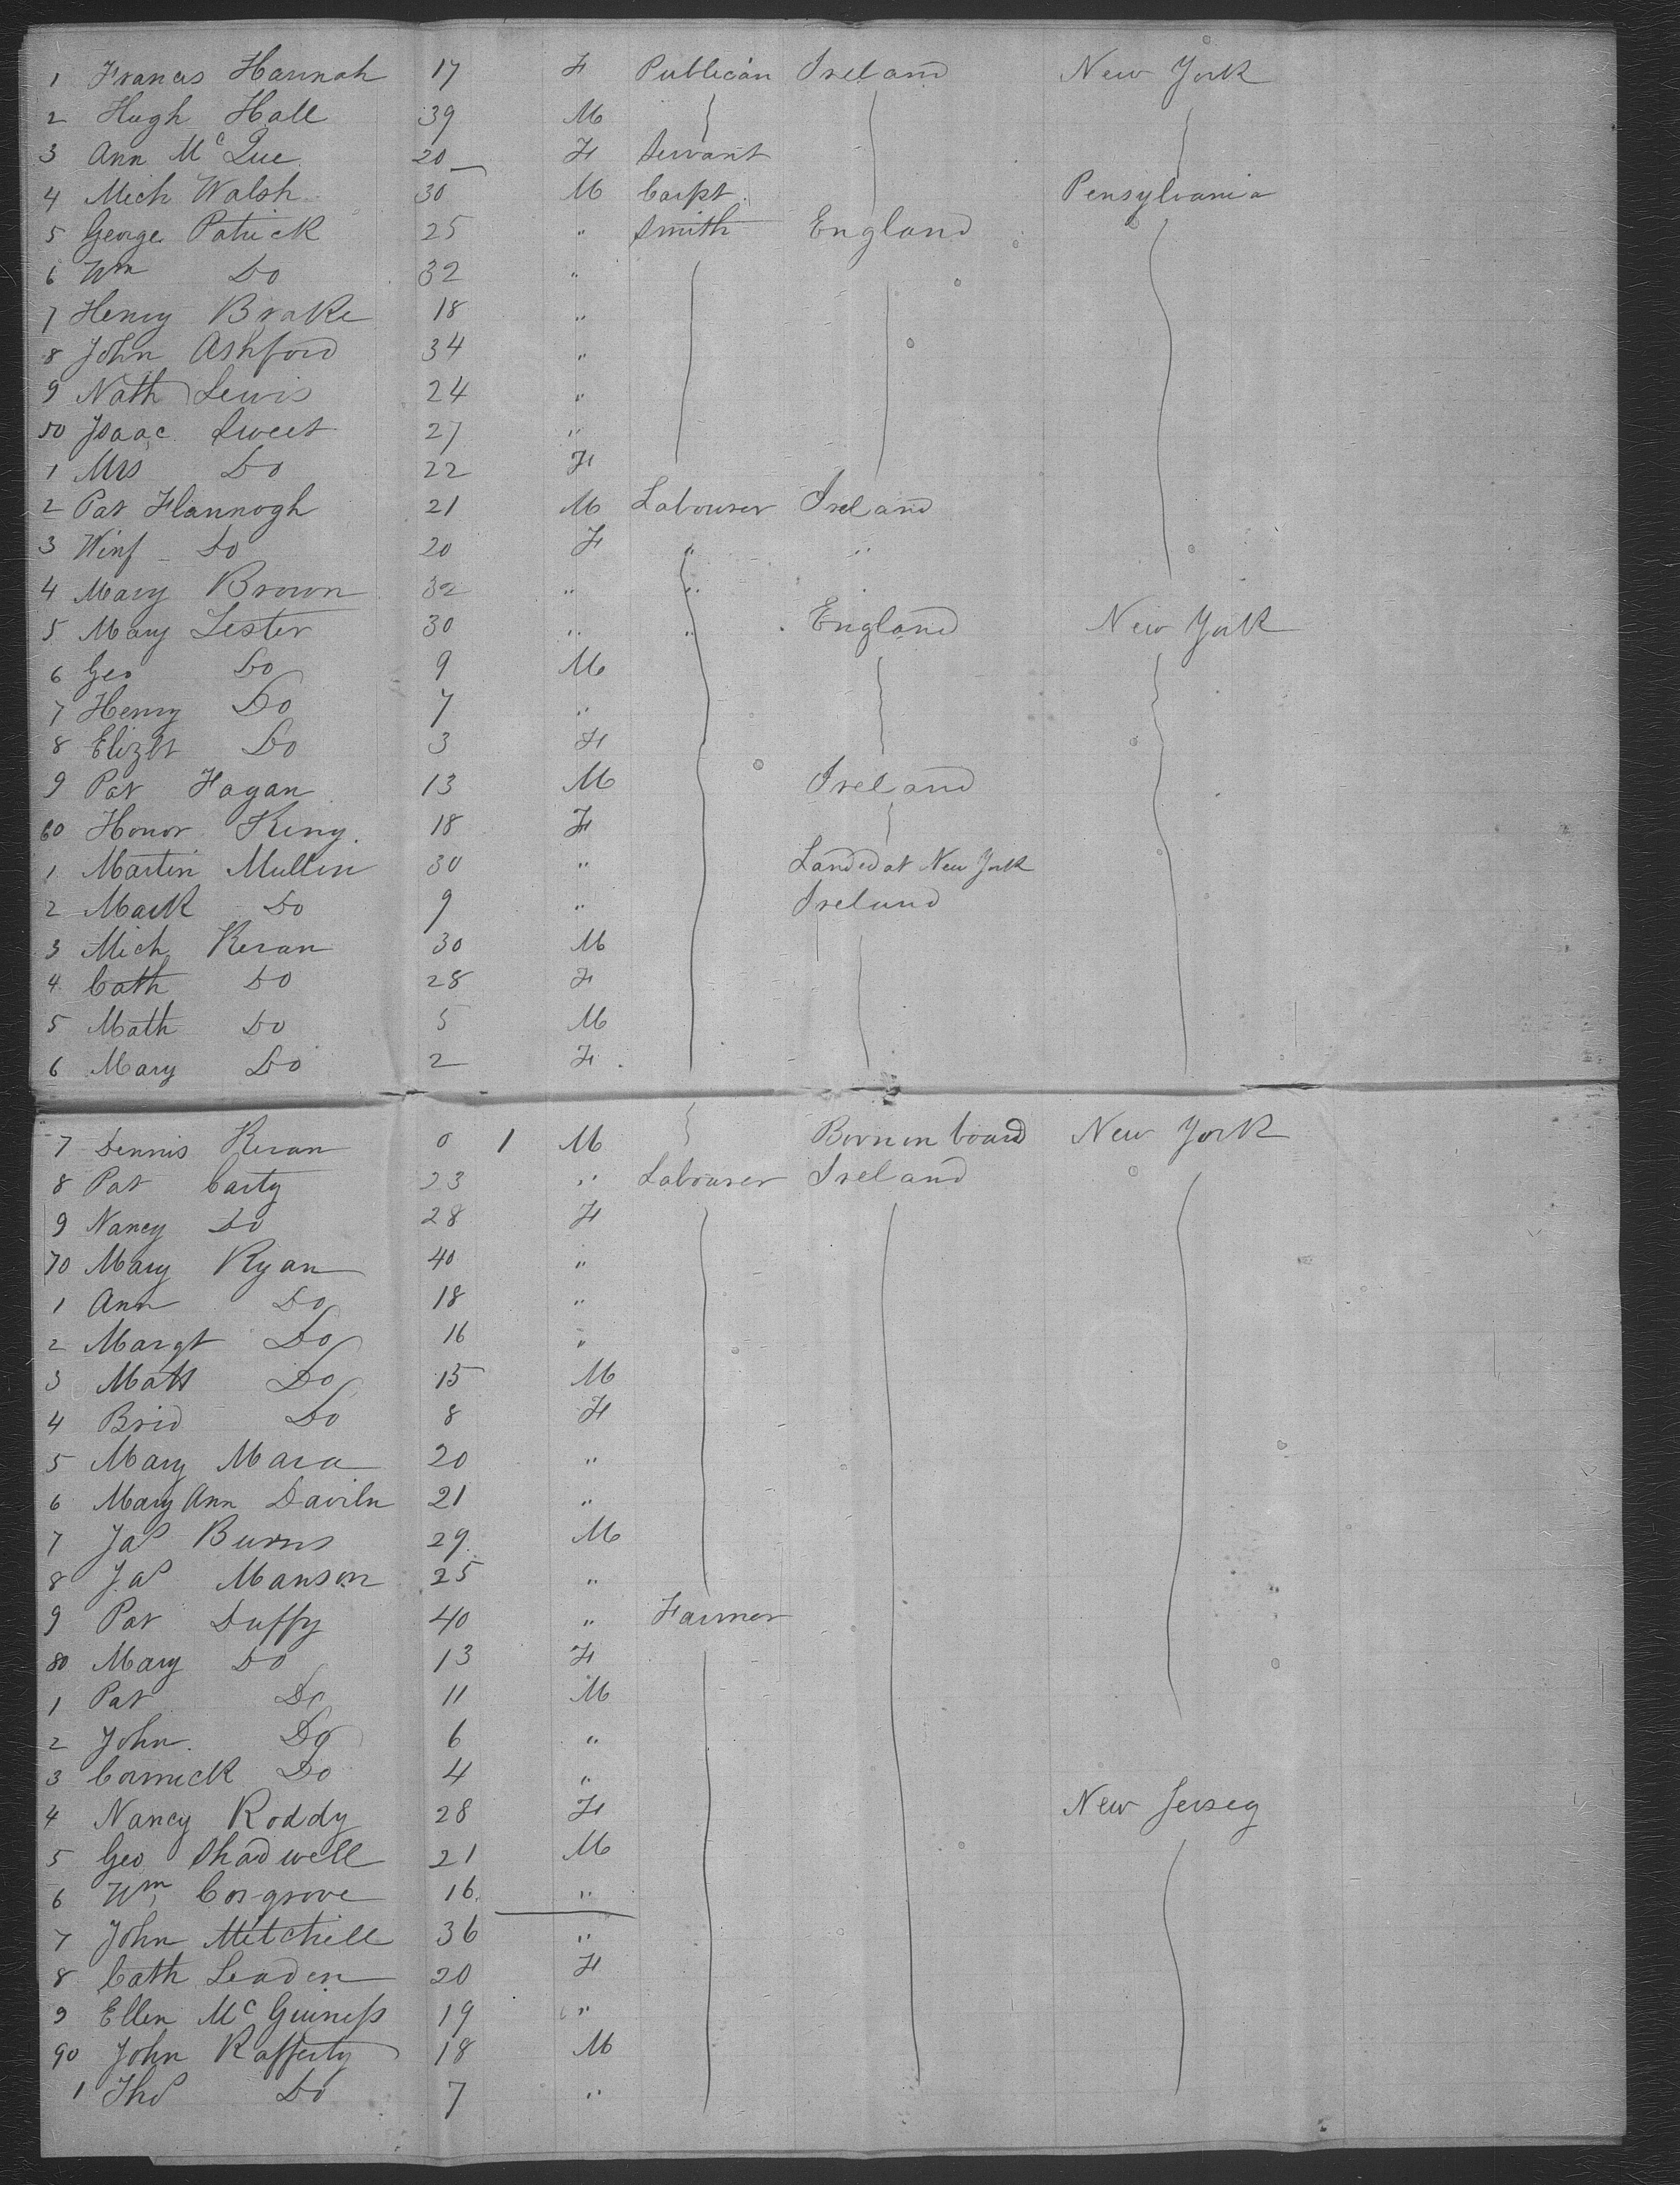 1 Francis Hannah 17 F Publican Ireland New York
2 Hugh Hall 39 M
3 Ann McQue 20 F Servant
4 Mich Walsh 30 M Carpt. Pensylvania
5 George Patrick 25 " Smith England
6 Wm Do 32 "
7 Henry Brake 18 "
8 John Ashford 34 "
9 Nath Lewis 24 "
50 Isaac Sweet 27 "
1 Mrs Do 22 F
2 Pat Flannogh 21 M Labourer Ireland
3 Winf Do 20 F " "
4 Mary Brown 32 " "
5 Mary Lester 30 " " England New York
6 Geo Do 9 M
7 Henry Do 7 "
8 Elizbt Do 3 F
9 Pat Fagan 13 M Ireland
60 Honor King 18 F
1 Martin Mullin 30 " Landed at New York
2 Mark Do 9 " Ireland
3 Mich Keran 30 M
4 Cath Do 28 F
5 Math Do 5 M
6 Mary Do 2 F
7 Dennis Keran 0 1 M Born on board New York
8 Pat Carty 23 " Labourer Ireland
9 Nancy Do 28 F
70 Mary Ryan 40 "
1 Ann Do 18 "
2 Margt Do 16 "
3 Matt Do 15 M
4 Brid Do 8 F
5 Mary Mara 20 "
6 Mary Ann Daviln 21 "
7 Jas Burns 29 M
8 Jas Manson 25 "
9 Pat Duffy 40 " Farmer
80 Mary Do 13 F
1 Pat Do 11 M
2 John Do 6 "
3 Cormick Do 4 "
4 Nancy Roddy 28 F New Jersey
5 Geo Shadwell 21 M
6 Wm Cosgrove 16 "
7 John Mitchell 36 "
8 Cath Leaden 20 F
9 Ellen McGuiness 19 "
90 John Rafferty 18 M
1 Thos Do 7 "